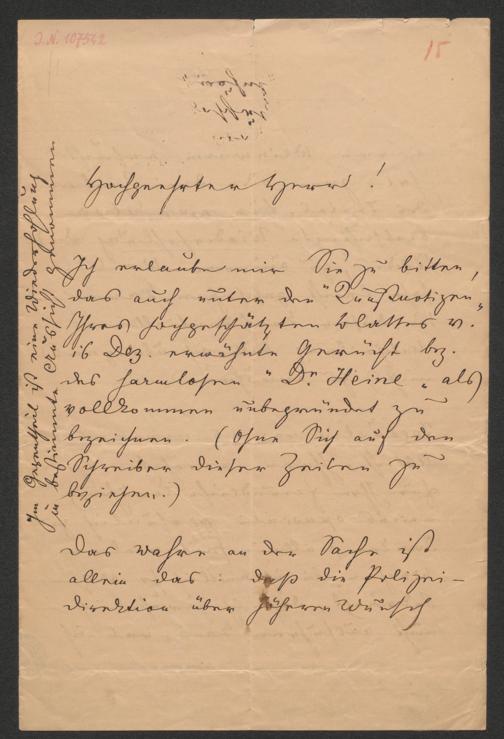 J.N. 107542
15
Hochgeehrter Herr!
Ich erlaube mir Sie zu bitten,
das auch unter den "Kunstnotizen"
Ihres hochgeschätzten Blattes v.
16 Dez. erwähnte Gerücht bez.
des harmlosen "Dr. Heine" als
vollkommen unbegründet zu
bezeichnen. (Ohne Sich auf den
Schreiber dieser Zeilen zu
beziehen.)
Das wahre an der Sache ist
allein das: daß die Polizei-
direktion über höheren Wunsch
Im Gegentheil ist eine Wiederholung
in bestimmte Aussicht genommen